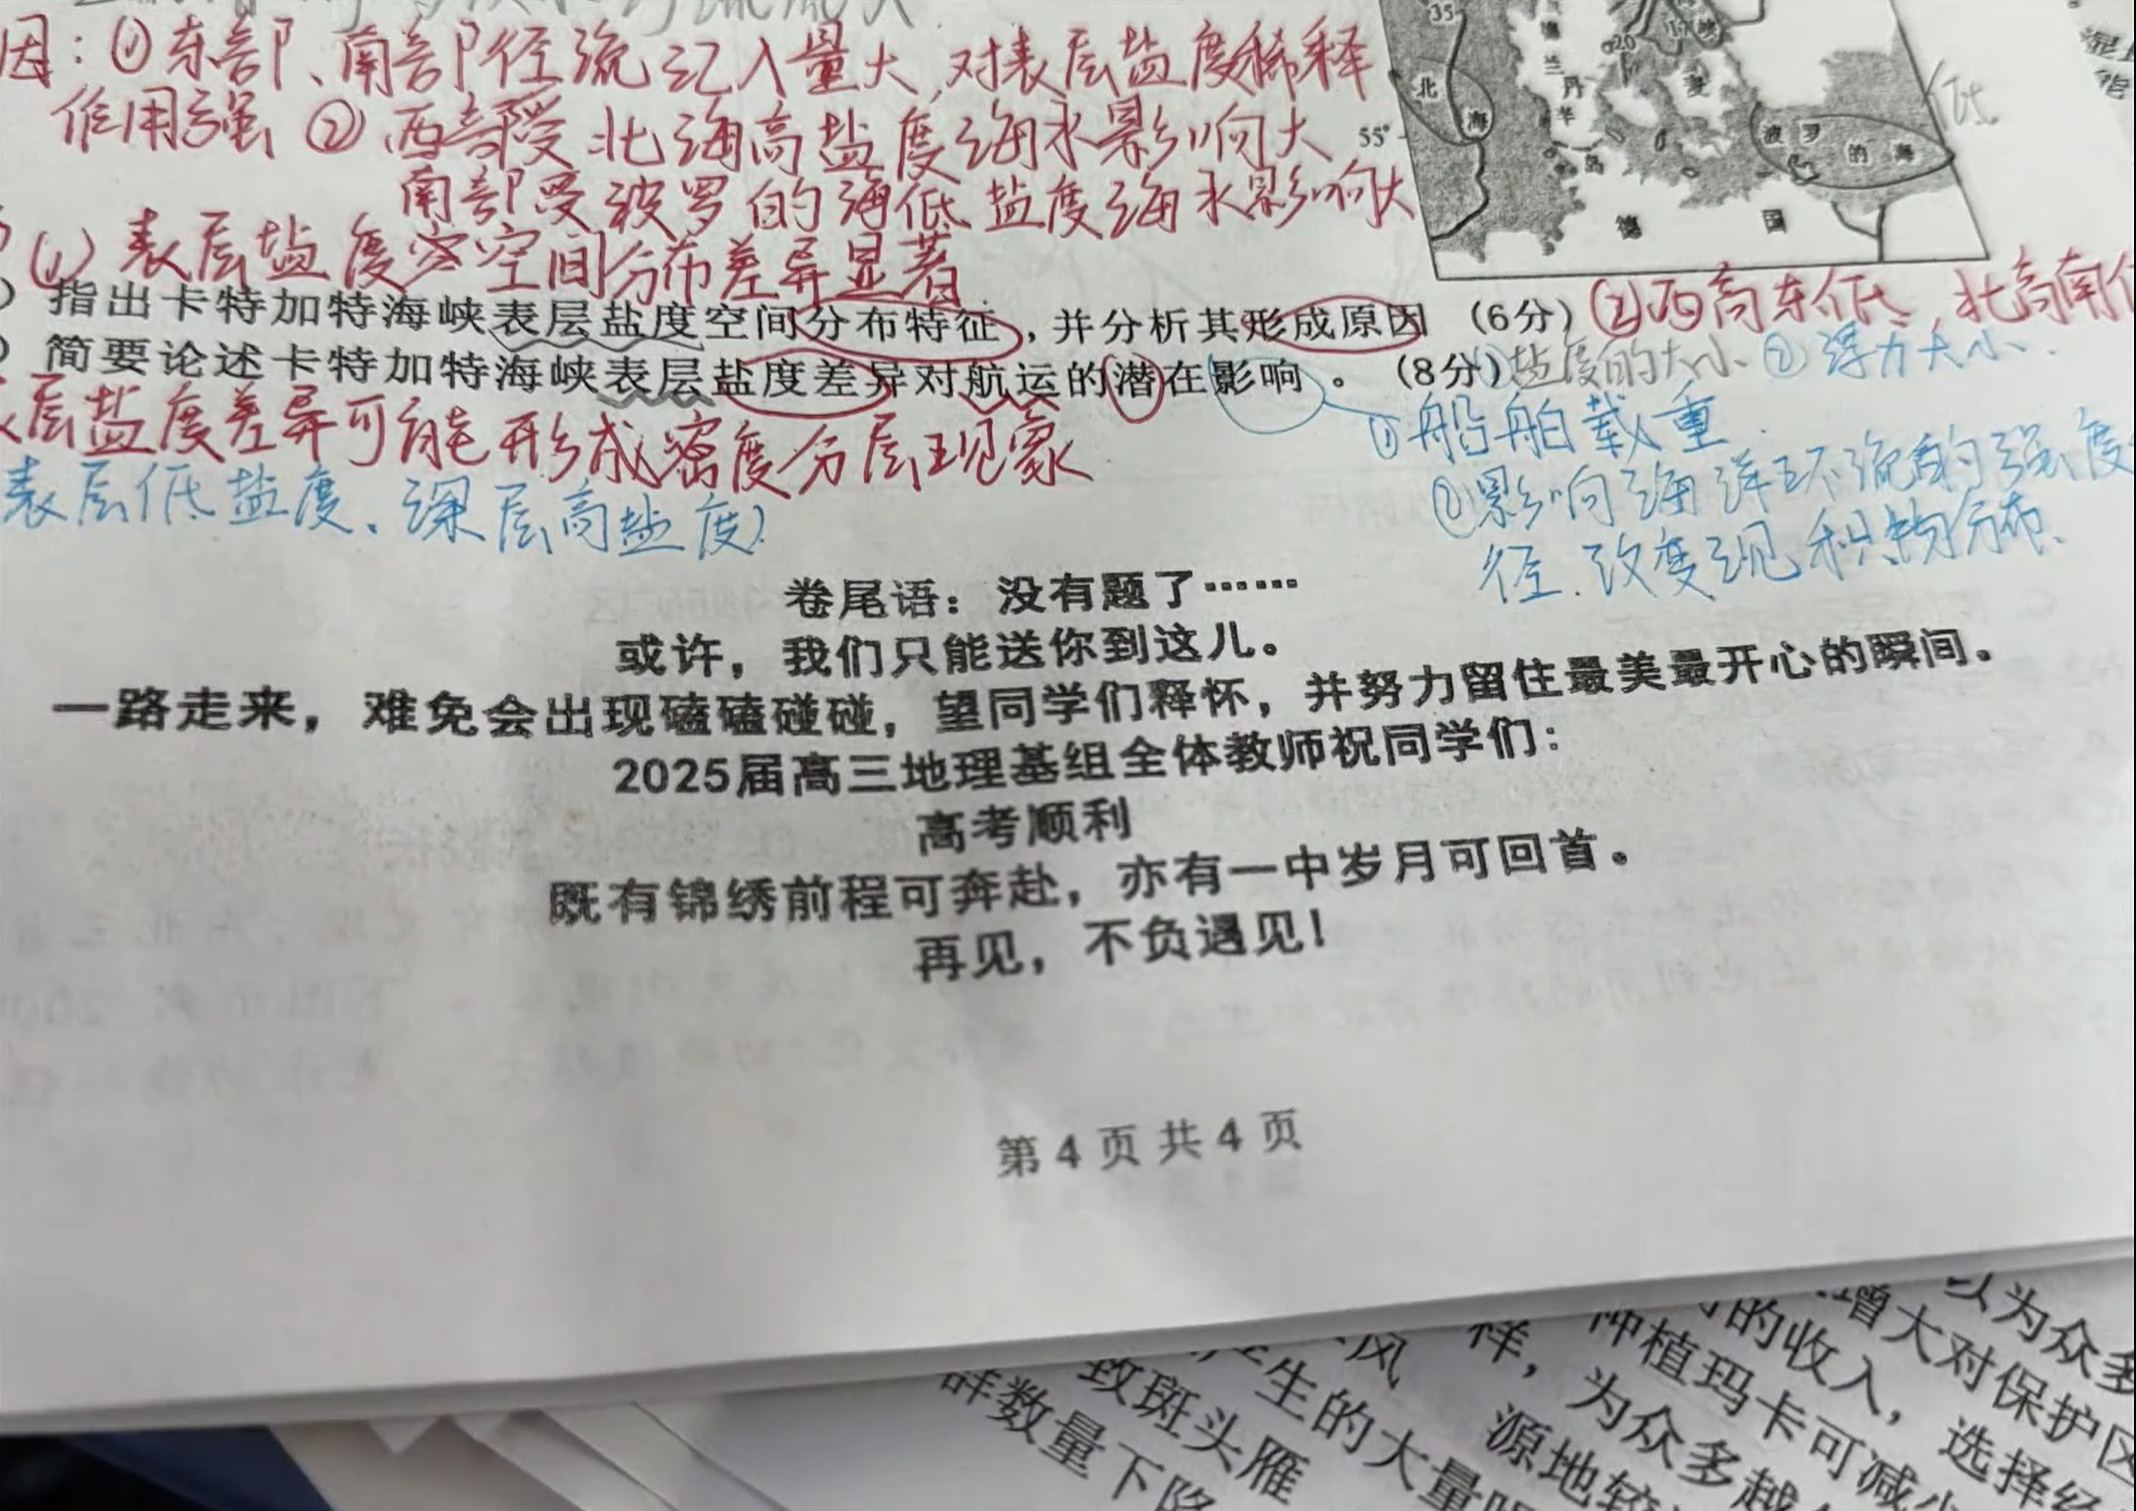 因：①东部、南部径流汇入量大，对表层盐度稀释
作用强 ②西部受北海高盐度海水影响大
南部受波罗的海低盐度海水影响大
(1)表层盐度空间分布差异显著
35
20
17
峡
德
兰
丹
麦
半
岛
北
海
55°
波罗的海
低
德国
指出卡特加特海峡表层盐度空间分布特征，并分析其形成原因（6分）②西高东低，北高南低
简要论述卡特加特海峡表层盐度差异对航运的潜在影响。（8分）①盐度的大小 ②浮力大小.
层盐度差异可能形成密度分层现象
①船舶载重
表层低盐度、深层高盐度)
②影响海洋环流的强度
径.改变沉积物分布.
卷尾语：没有题了……
或许，我们只能送你到这儿。
一路走来，难免会出现磕磕碰碰，望同学们释怀，并努力留住最美最开心的瞬间。
2025届高三地理基组全体教师祝同学们：
高考顺利
既有锦绣前程可奔赴，亦有一中岁月可回首。
再见，不负遇见！
第 4 页 共 4 页
以为众多
增大对保护区
的收入，选择
种植玛卡可减
样，为众多越
源地较
风
产生的大量
致斑头雁
群数量下降